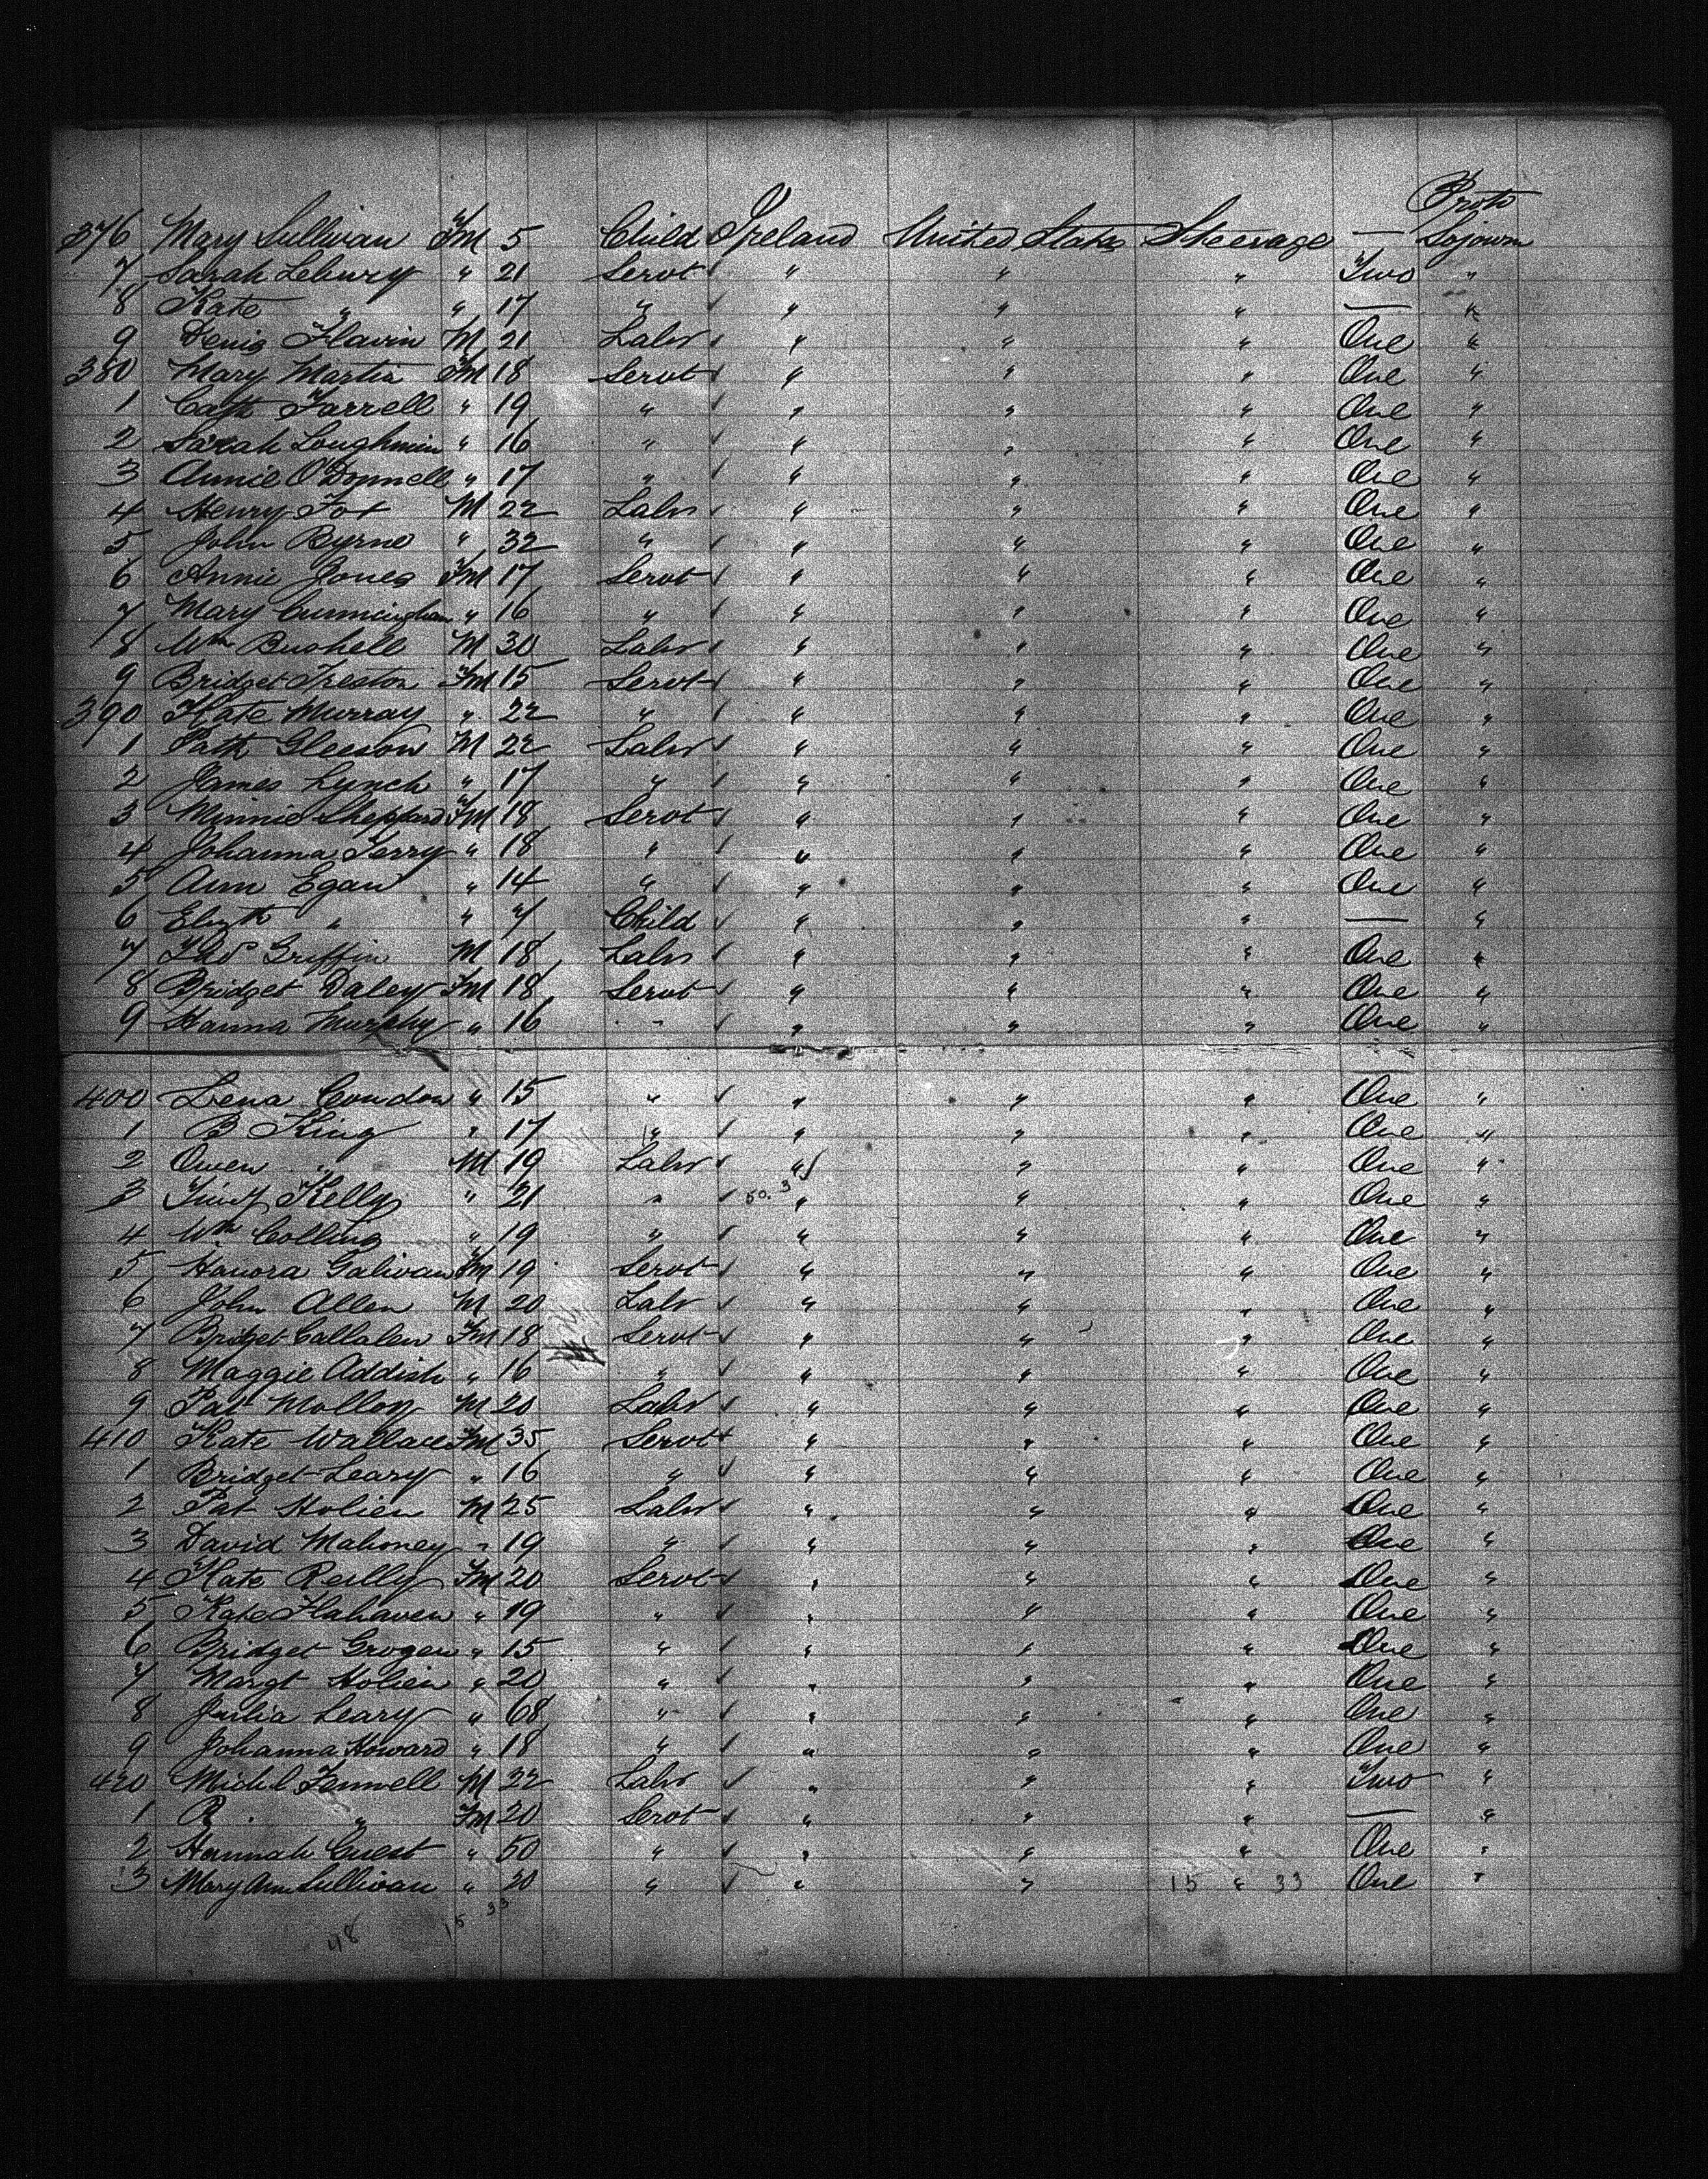 Proto
376 Mary Sullivan Fm 5 Child Ireland United States Steerage — Sojourn
7 Sarah " 21 Servt ✓ " " " Two "
8 Kate " " 17 " ✓ " " " — "
9 Denis Flavin M 21 Labr ✓ " " " One "
380 Mary Martin Fm 18 Servt ✓ " " " One "
1 Cath Farrell " 19 " ✓ " " " One "
2 Sarah " 16 " ✓ " " " One "
3 Annie O'Donnell " 17 " ✓ " " " One "
4 Henry Fox M 22 Labr ✓ " " " One "
5 John Byrne " 32 " ✓ " " " One "
6 Annie Jones Fm 17 Servt ✓ " " " One "
7 Mary Cunningham " 16 " ✓ " " " One "
8 Wm Bushell M 30 Labr ✓ " " " One "
9 Bridget Freston Fm 15 Servt ✓ " " " One "
390 Kate Murray " 22 " ✓ " " " One "
1 Patk Gleeson M 22 Labr ✓ " " " One "
2 James Lynch " 17 " ✓ " " " One "
3 Minnie Sheppard Fm 18 Servt ✓ " " " One "
4 Johanna Terry " 18 " ✓ " " " One "
5 Ann Egan " 14 " ✓ " " " One "
6 Elizth " " 7 Child ✓ " " " — "
7 Griffin M 18 Labr ✓ " " " One "
8 Bridget Daley Fm 18 Servt ✓ " " " One "
9 Hanna Murphy " 16 " ✓ " " " One "
400 Lena Condon " 15 " ✓ " " " One "
1 B King " 17 " ✓ " " " One "
2 Owen " M 19 Labr ✓ " " " One "
3 Timy Kelly " 21 " ✓ 50. 3 " " " One "
4 Wm Collins " 19 " ✓ " " " One "
5 Hanora Galivan Fm 19 Servt ✓ " " " One "
6 John Allen M 20 Labr ✓ " " " One "
7 Bridget Callalen Fm 18 Servt ✓ " " " One "
8 Maggie Addish " 16 " ✓ " " " One "
9 Pat Molloy M 20 Labr ✓ " " " One "
410 Kate Wallace Fm 35 Servt + " " " One "
1 Bridget Leary " 16 " ✓ " " " One "
2 Pat Holien M 25 Labr ✓ " " " One "
3 David Mahoney " 19 " ✓ " " " One "
4 Kate Reilly Fm 20 Servt ✓ " " " One "
5 Kate Flahaven " 19 " ✓ " " " One "
6 Bridget Grogen " 15 " ✓ " " " One "
7 Margt Holien " 20 " ✓ " " " One "
8 Julia Leary " 68 " ✓ " " " One "
9 Johanna Howard " 18 " ✓ " " " One "
420 Michl Fennell M 22 Labr ✓ " " " Two "
1 B " Fm 20 Servt ✓ " " " — "
2 Hannah Guest " 50 " ✓ " " " One "
3 Mary Ann Sullivan " 20 " ✓ " " 15 " 33 One "
48 15 33